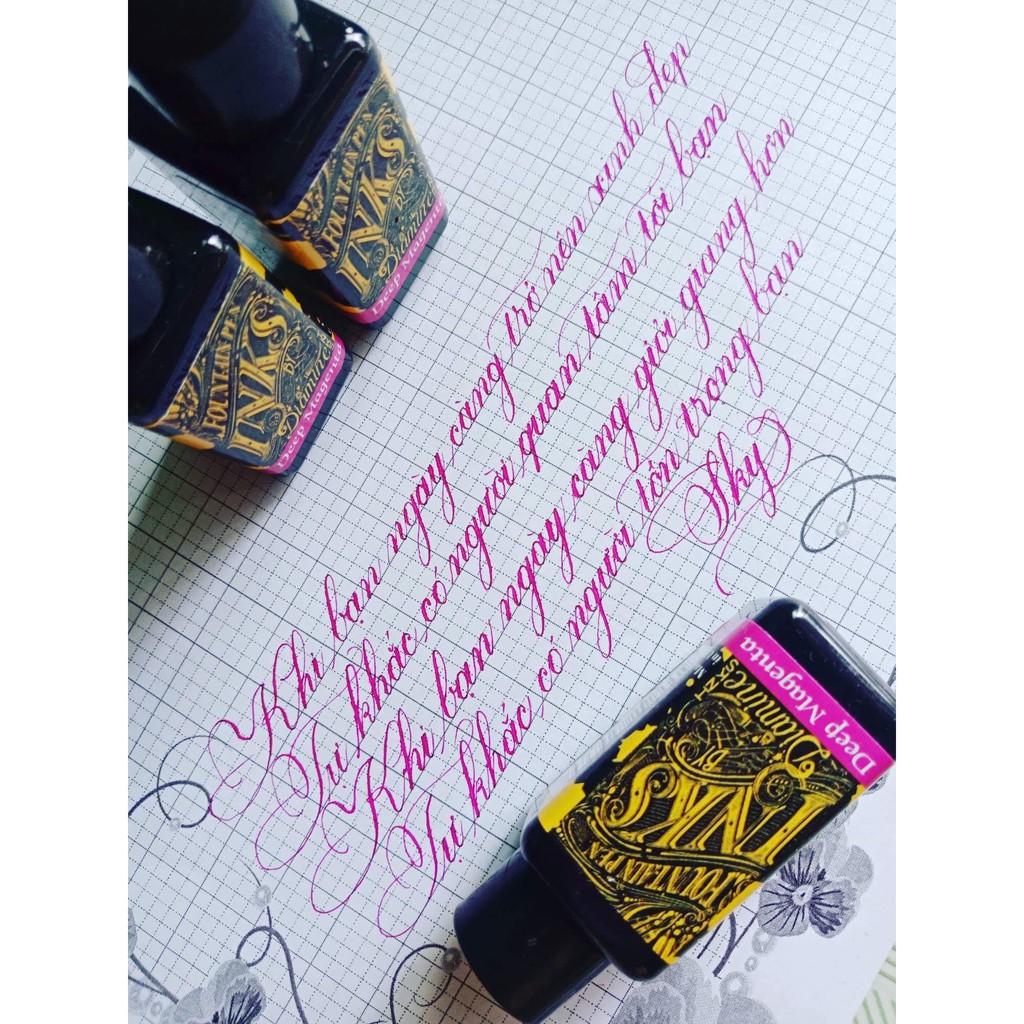 FOUNTAIN PEN
INKS
BY
Diamine
Deep Magenta
FOUNTAIN PEN
INKS
BY
Diamine
Deep Magenta
Khi bạn ngày càng trở nên xinh đẹp
Tự khắc có người quan tâm tới bạn
Khi bạn ngày càng giỏi giang hơn
Tự khắc có người tôn trọng bạn
Sky
Deep Magenta
Diamine
BY
INKS
FOUNTAIN PEN